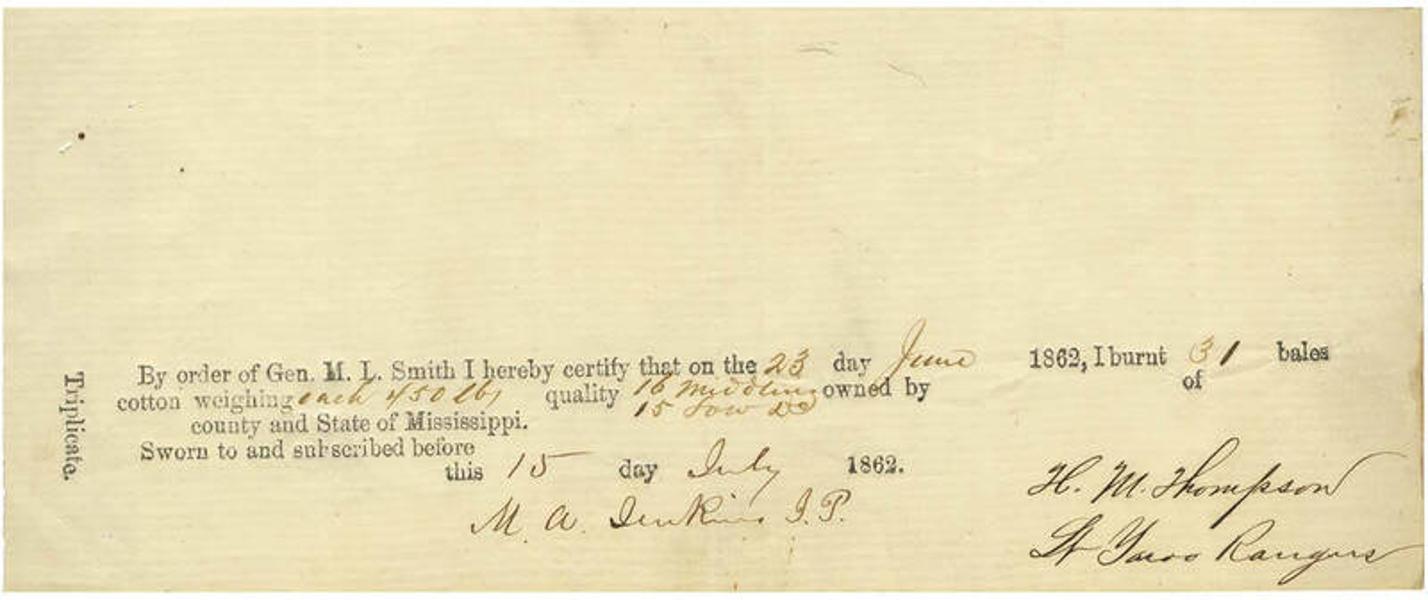 By order of Gen. M. L. Smith I hereby certify that on the 23 day June 1862, I burnt 31 bales
cotton weighing each 450 lbs quality 16 Middling owned by of
15 Low Do
county and State of Mississippi.
Sworn to and subscribed before
this 15 day July 1862.
M. A. Jenkins J. P.
H. M. Thompson
Lt Yazoo Rangers
Triplicate.